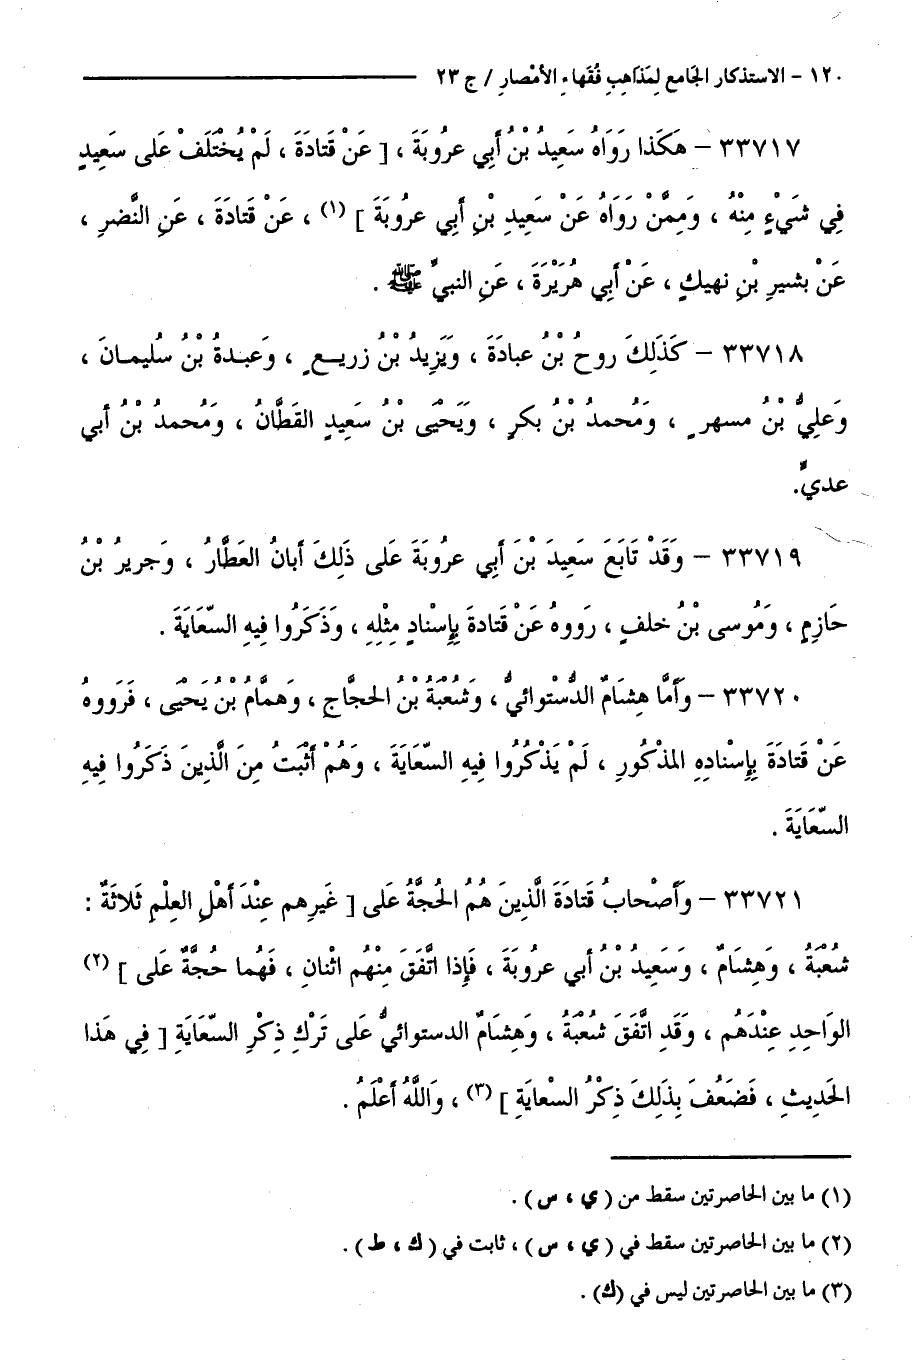 ١٢٠ - الاستذكار الجَامع لِمَذاهِبِ فُقَهاءِ الأمْصارِ / ج ٢٣
٣٣٧١٧ - هَكَذا رَوَاهُ سَعِيدُ بْنُ أبِي عرُوبَةَ ، [ عَنْ قتَادَةَ ، لَمْ يُخْتَلَفْ عَلى سعِيدٍ
فِي شَيْءٍ مِنْهُ ، وَمِمَّنْ رَوَاهُ عَنْ سَعِيدِ بْنِ أبِي عرُوبَةَ ] (١) ، عَنْ قتَادَةَ ، عَنِ النَّضرِ ،
عَنْ بشيرِ بْنِ نهيكٍ ، عَنْ أبِي هُرَيْرَةَ ، عَنِ النبيِّ ﷺ .
٣٣٧١٨ - كَذَلِكَ روحُ بْنُ عبادَةَ ، وَيَزِيدُ بْنُ زريعٍ ، وَعبدةُ بْنُ سُليمانَ ،
وَعَلِيُّ بْنُ مسهرٍ ، وَمُحمدُ بْنُ بكرٍ ، وَيَحْيَى بْنُ سَعِيدٍ القَطَّانُ ، وَمُحمدُ بْنُ أبي
عديٍّ.
٣٣٧١٩ - وَقَدْ تَابَعَ سَعِيدَ بْنَ أبِي عروُبَةَ عَلى ذَلِكَ أبانُ العَطَّارُ ، وَجريرُ بْنُ
حَازِمٍ ، وَمُوسى بْنُ خلفٍ ، رَووهُ عَنْ قتادةَ بِإِسْنادٍ مِثْلِهِ ، وَذَكَرُوا فِيهِ السّعَايَةَ .
٣٣٧٢٠ - وَأمَّا هِشَامٌ الدُّسْتوائيُّ ، وَشُعْبَةُ بْنُ الحجَّاجِ ، وَهمَّامُ بْنُ يَحْيَى ، فَرَووهُ
عَنْ قتَادَةَ بِإِسْنادِهِ المذْكُورِ ، لَمْ يَذْكُرُوا فِيهِ السّعَايَةَ ، وَهُمْ أثْبَتُ مِنَ الَّذِينَ ذَكَرُوا فِيهِ
السّعَايَةَ .
٣٣٧٢١ - وَأصْحابُ قتَادَةَ الَّذِينَ هُمُ الحُجَّةُ عَلى [ غَيرِهِم عِنْدَ أهْلِ العِلْمِ ثَلاثَةٌ :
شُعْبَةُ ، وَهِشَامٌ ، وَسعِيدُ بْنُ أبي عروبَةَ ، فَإِذا اتَّفَقَ مِنْهُم اثْنانِ ، فَهُما حُجَّةٌ عَلى ] (٢)
الوَاحِدِ عِنْدَهُم ، وَقَدِ اتَّفَقَ شُعْبَةُ ، وَهشَامٌ الدستوائيُّ عَلى تَرْكِ ذِكْرِ السّعَايَةِ [ فِي هَذا
الحَدِيثِ ، فَضَعُفَ بِذَلِكَ ذِكْرُ السعْايَةِ ] (٣) ، وَاللَّهُ أعْلَمُ .
(١) ما بين الحاصرتين سقط من ( ي ، س ) .
(٢) ما بين الحاصرتين سقط في ( ي ، س ) ، ثابت في ( ك ، ط ) .
(٣) ما بين الحاصرتين ليس في (ك) .